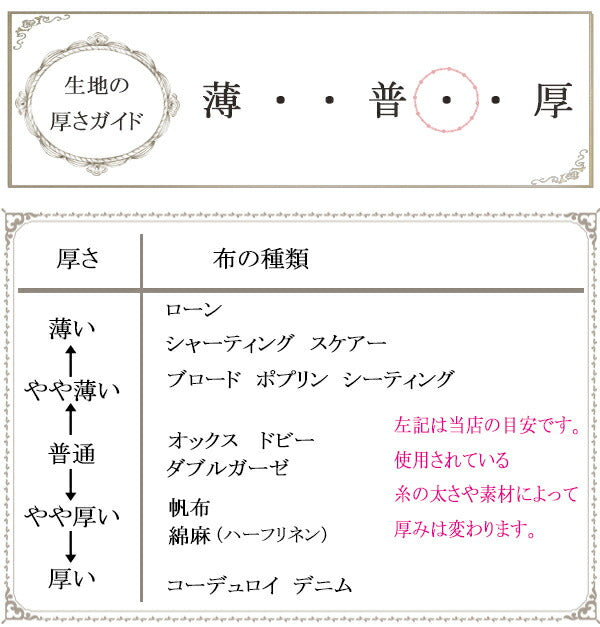 生地の
厚さガイド
薄・・普・・厚
厚さ 布の種類
薄い
やや薄い
普通
やや厚い
厚い
ローン
シャーティング スケアー
ブロード ポプリン シーティング
オックス ドビー
ダブルガーゼ
帆布
綿麻（ハーフリネン）
コーデュロイ デニム
左記は当店の目安です。
使用されている
糸の太さや素材によって
厚みは変わります。